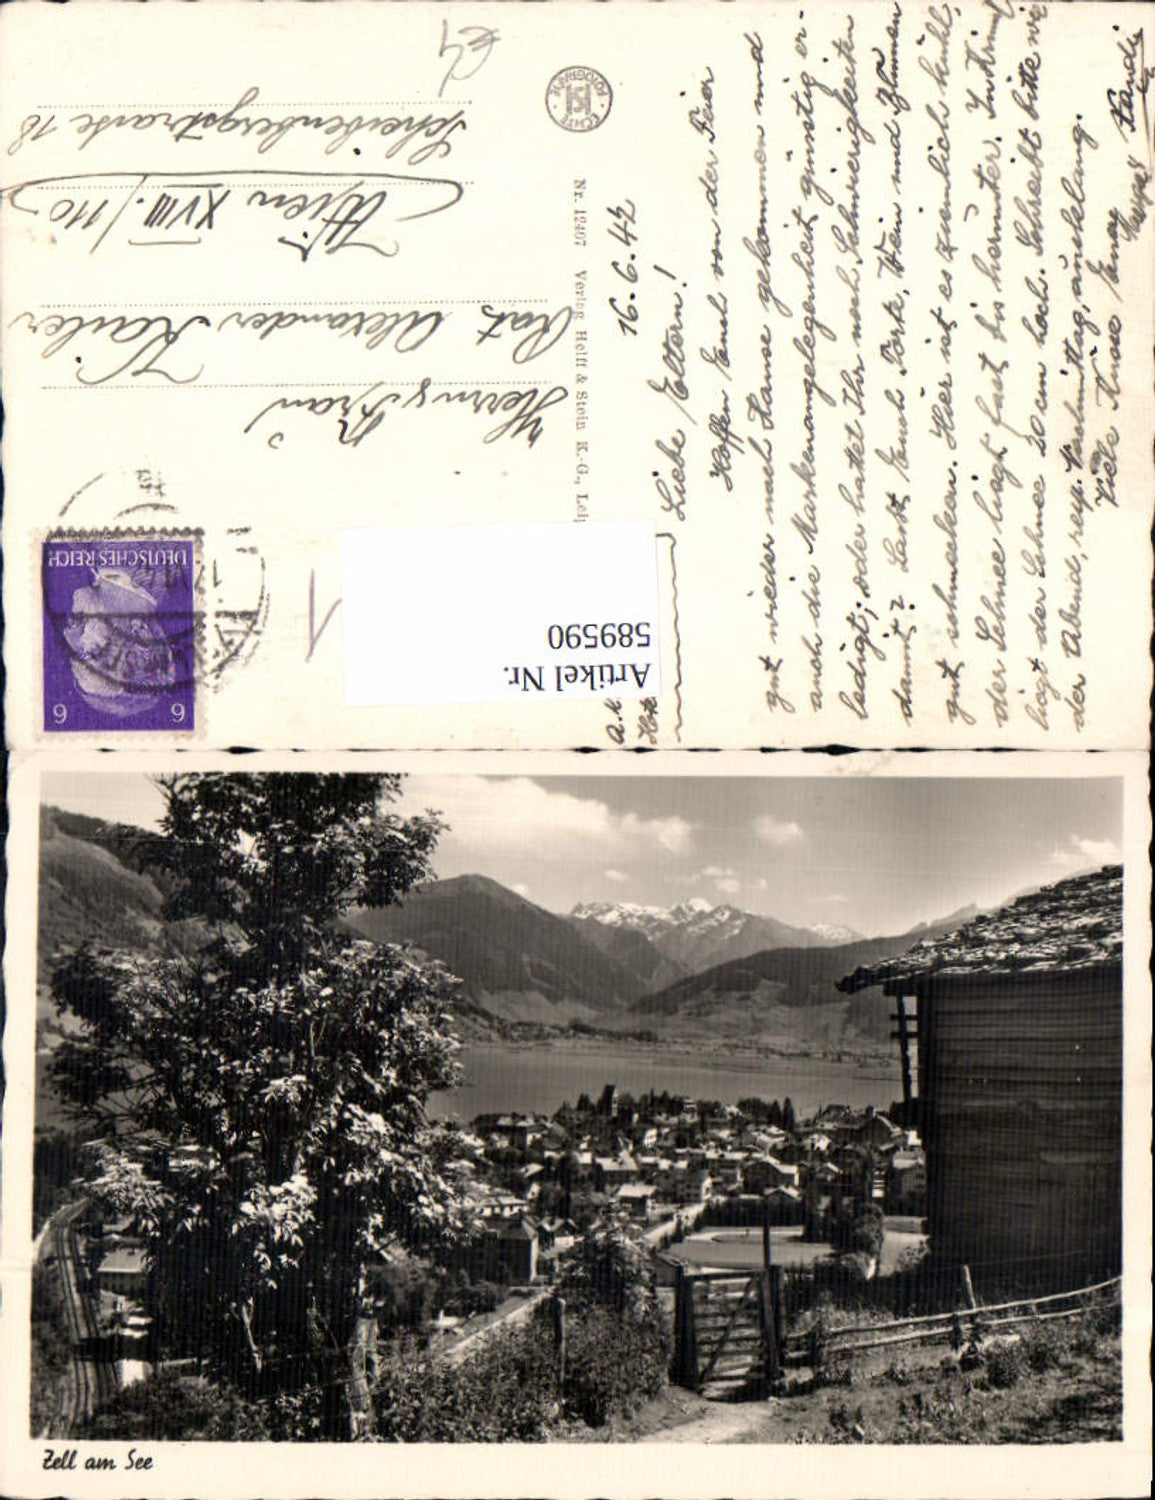 16.6.42
Liebe Eltern!
Hoffen Euch von der Feier
gut wieder nach Hause gekommen und
auch die Markenangelegenheit günstig er-
ledigt; oder hattet Ihr noch Schwierigkeiten
damit? Lasst Euch Pork, Wein und
gut schmecken. Hier ist es ziemlich kühl,
der Schnee liegt fast bis herunter. In Krimml
liegt der Schnee 20 cm hoch. Schreibt bitte wie
der Abend, resp. Vormittag, ausklang.
Viele Küsse Eure
Nr. 12407 Verlag Helff & Stein K.-G., Leip
ECHTE PHOTOGRAPHIE
Herrn u Frau
Rat Alexander
Wien XVIII./110
Scheibenbergstraße 18
DEUTSCHES REICH
6 6
Artikel Nr.
589590
Zell am See